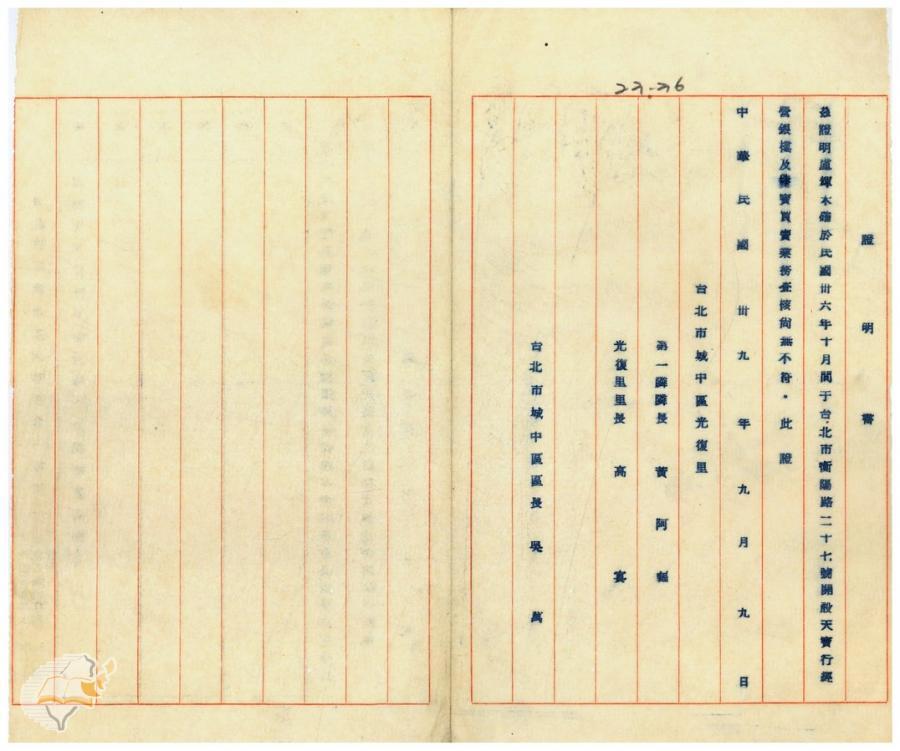 證明書
茲證明盧輝木確於民國卅六年十月間于台北市衡陽路二十七號開設天寶行經
營銀樓及珠寶買賣業務查核尚無不符。此證
中華民國卅九年九月九日
台北市城中區光復里
第一鄰鄰長 黃阿
光復里里長 高宴
台北市城中區區長 吳萬